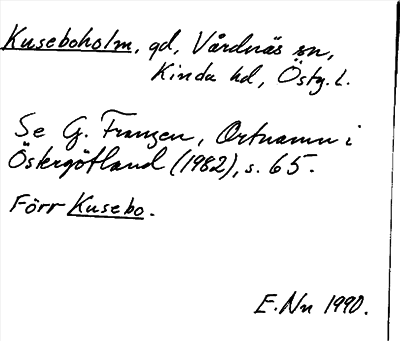 Kuseboholm, gd, Vårdnäs sn,
Kinda hd, Östg. l.
Se G. Franzen, Ortnamn i
Östergötland (1982), s. 65.
Förr Kusebo.
E. Nn 1990.